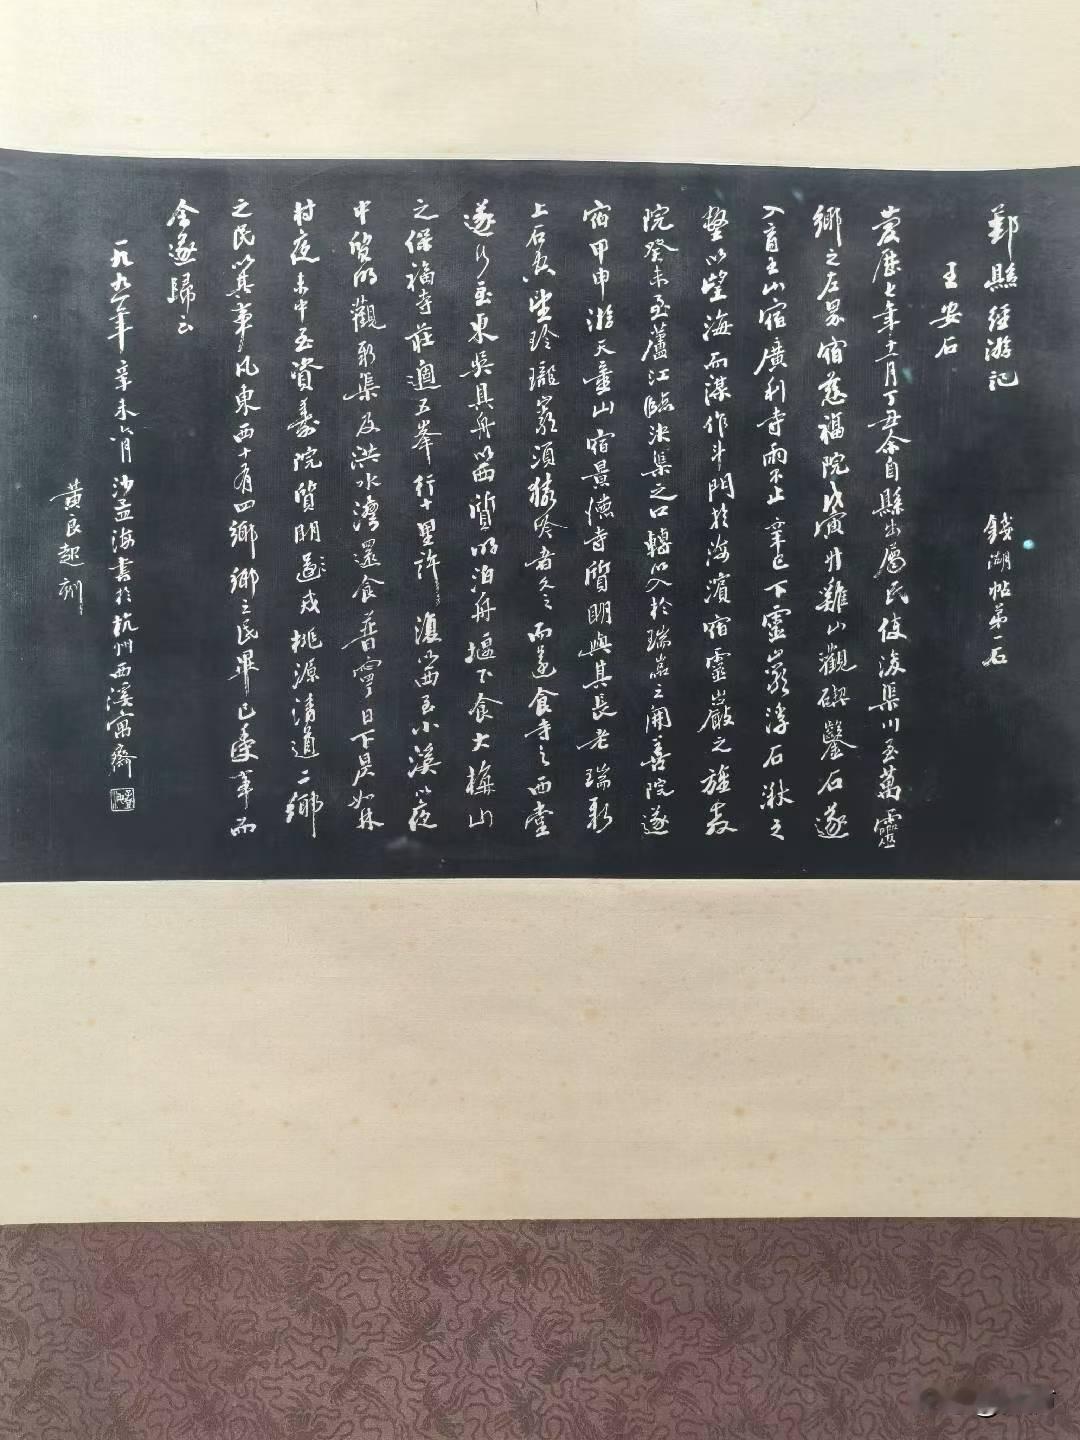 鄞縣經游記
錢湖帖第一石
王安石
慶曆七年十一月丁丑余自縣出屬民使浚渠川至萬靈
鄉之左界宿慈福院戊寅升雞山觀碶鑿石遂
入育王山宿廣利寺雨不止辛巳下靈巖浮石湫之
壑以望海而謀作斗門於海濱宿靈巖之旌教
院癸未至蘆江臨決渠之口轉以入於瑞巖之開善院遂
宿甲申游天童山宿景德寺質明與其長老瑞新
上石望玲瓏巖須猿吟者久之而還食寺之西堂
遂行至東吳具舟以西質明泊舟堰下食大梅山
之保福寺莊過五峯行十里許復以西至小溪以夜
中質明觀新渠及洪水灣還食普寧日下昃如林
村夜未中至資壽院質明遂戒桃源清道二鄉
之民以其事凡東西十有四鄉鄉之民畢已受事而
余遂歸云
一九九一年辛未六月沙孟海書於杭州西溪寓齋
黃良起刻